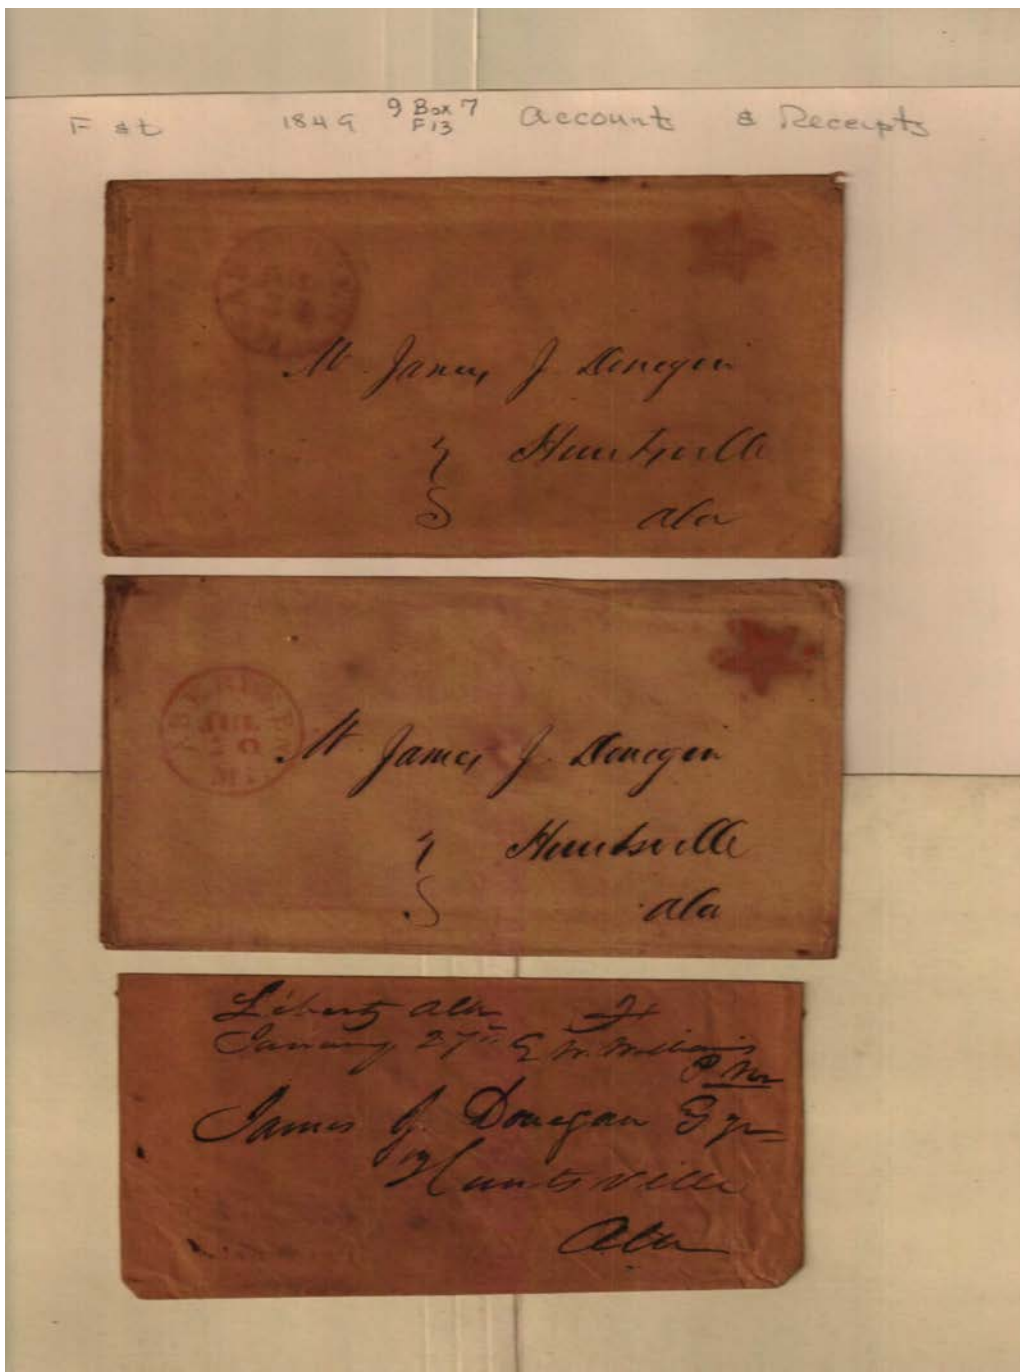 F & t 1849 9 Box 7 F13 Accounts & Receipts
Mr. James J. Donegan
Huntsville
Ala
ABERDEEN
Mr James J. Donegan
Huntsville
Ala
Liberty Ala
January 27th G W. Williams
P. M.
James J. Donegan Esqr
Huntsville
Ala